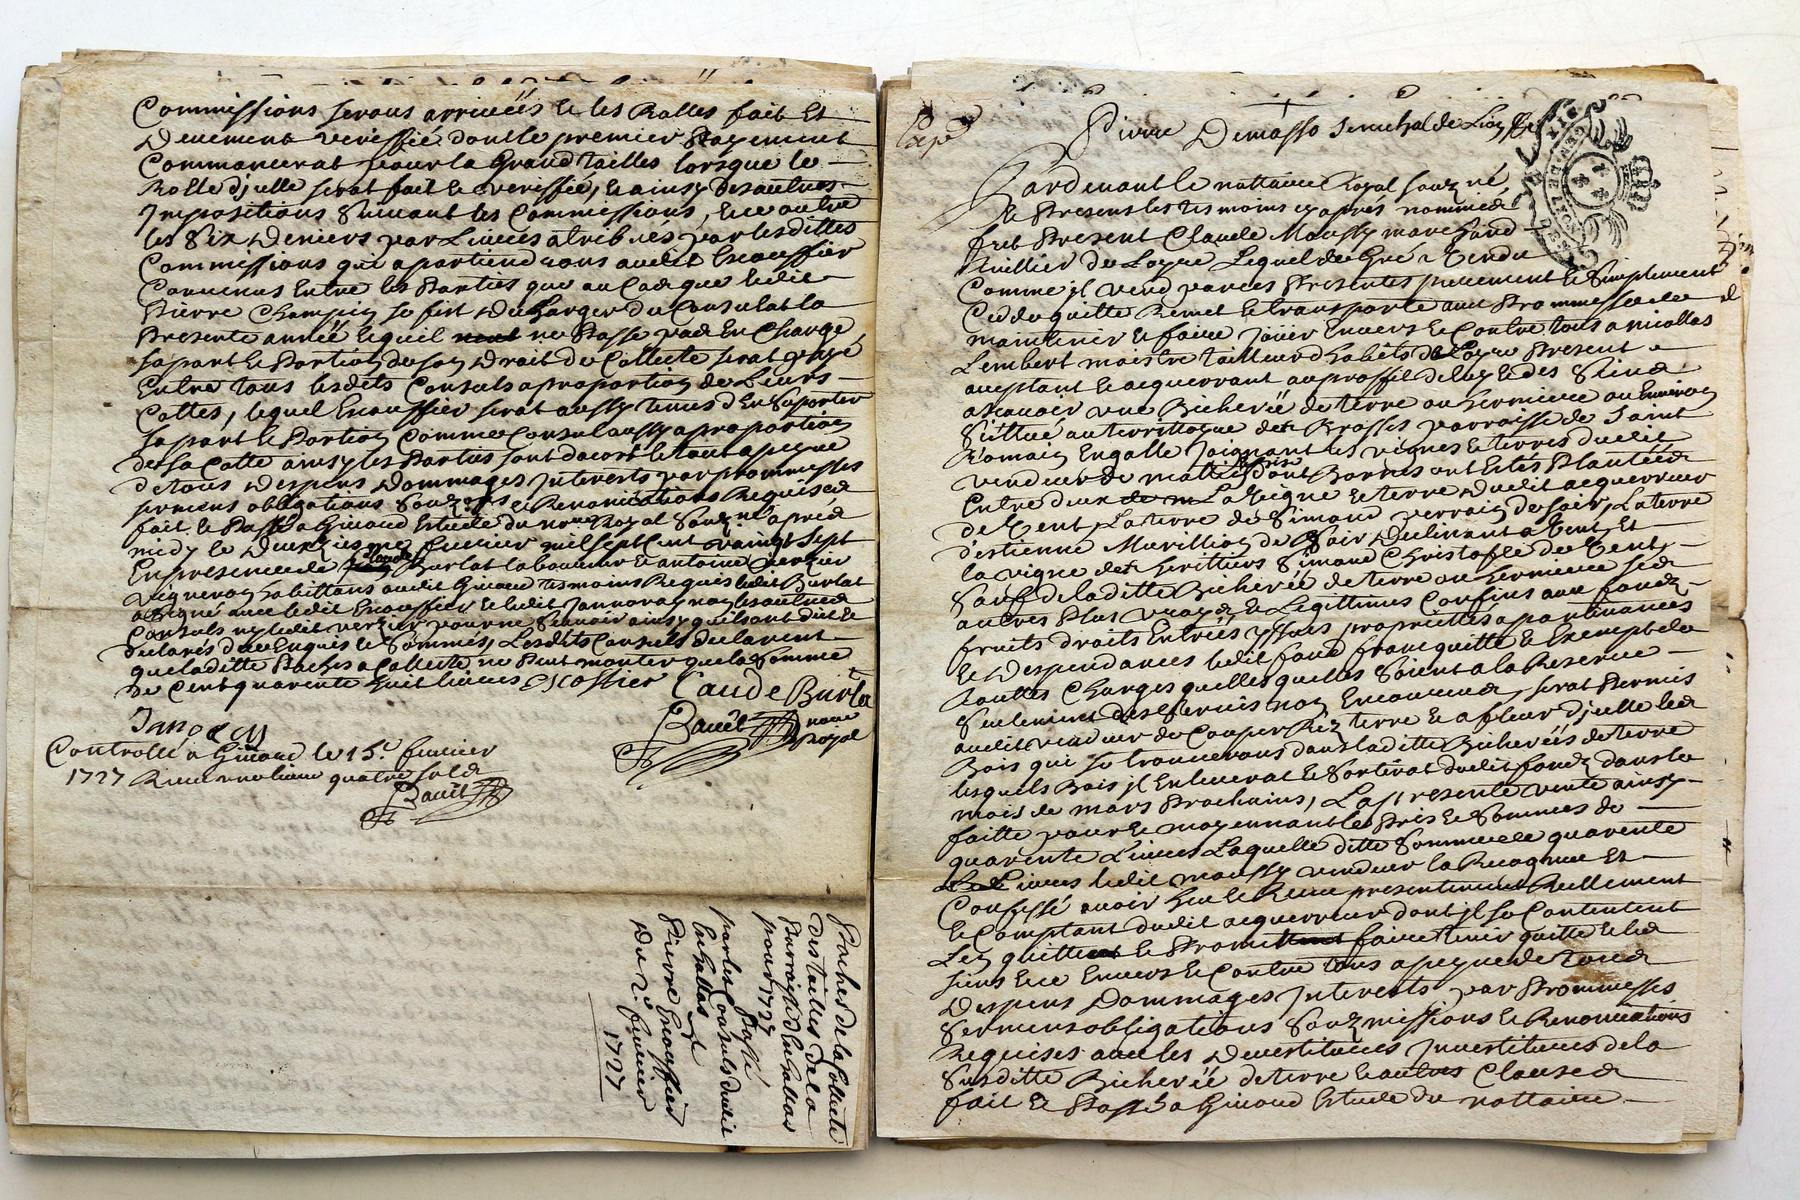 Commissions serons arrivées et les Rolles fait Et
Deuement veriffié dont le premier Payement
Commancerat pour la Grand Tailles lorsque le
Rolle d'jcelle serat fait et veriffié, et ainsy des autres
Jmpositions suivant les Commissions, Et ce outre
les six Deniers par Livres atribués par lesdittes
Commissions qui apartiendrons audit Escoffier
Convenus Entre les Parties que au Cas que ledit
Pierre Champin se fist Décharger du Consulat la
Presente année et quil ne Passe pas En Charge
sa part et Portion de son Droit de Collecte serat
Entre tous lesdits Consuls a proportion de Leurs
Cottes, lequel Escoffier serat aussy tenus d'En suporter
sa part et Portion Comme Consul aussy a proportion
de sa Cotte ainsy les Parties sont dacord le tout a peyne
de tous Despens Dommages Jnterests par promesses
sermens obligations Renonciations Requises
fait et Passé a Givord Estude du Royal apres
midy le Deuxiesme fevrier mil sept Cent vaingt sept
En presence de Claude Burlat laboureur et antoine Verzier
vigneron habittans audit Givord tesmoins Requis ledit Burlat
a signé avec ledit Escoffier et ledit Jannoray non les autres
Consuls ny ledit verzier pour ne sçavoir ainsy quils ont dit et
declarés de ce Enquis et sommés, Lesdits Consuls declarent
que laditte Collecte ne Peut monter que la somme
de Cent quarente huit livres Escoffier Caude Burla
Janorey
Bauël nore Royal
Controllé a Givord le 15e fevrier
1727 Receu quatre sols
Bauël
de la Collecte
des tailles de la
Parroisse
pour 1727
Passé
par les Consuls dudit

Pierre Escoffier
Du 2e fevrier
1727
Expe
Pierre Demasso senechal de Lion
GEN DE LYON
SIX DEN
Pardevant le nottaire Royal souz né
Et Presens les tesmoins cy aprés nommés
fut Present Claude Moussy marchand
de Loyre Lequel de Gré a vendu
Comme jl vend par ces Presentes purement et simplement
Cedde quitte Remet et transporte avec Promesse de
maintenir et faire jouir Envers et Contre tous a nicollas
Lembert maistre tailleur d'habits de Loyre Present
acceptant et acquerrant au proffit de luy et des siens
asçavoir une Bicherée de terre ou hermiture ou Environ
sittué au territtoire des Brosses parroisse de Saint
Romain Engalle joignant les vignes et terres dudit
vendeur de mattin dont Bornes ont Estés Plantées
Entre deux La vigne et terre dudit acquerreur
de vent, La terre de Simond verrain de soir, La terre
d'estienne Murillion de soir declinant a vent, Et
la vigne des heritiers Simond Christofle de vent
sauf de laditte Bicherée de terre ou hermiture ses
autres Plus vrays et Legittimes Confins aux fonds
fruits droits Entrées yssues proprietés apartenances
et Despendances ledit fond franc quitte et Exempt de
touttes Charges quelles quelles soient a la Reserve
seulement des servis non Encourus, serat Permis
audit vendeur de Couper Rez terre et a fleur d'jcelle les
Bois qui se trouverons dans laditte Bicherée de terre
lesquels Bois jl Enleverat et sortirat dudit fond dans le
mois de mars Prochains, La presente vente ainsy
faitte pour et moyennant le Prix et sommes de
quarente Livres Laquelle ditte somme de quarente
Livres ledit moussy vendeur la Recognue Et
Confessé avoir heu et Receu presentement Reellement
et Comptant dudit acquerreur dont jl se Contentent
Len quitte et Promet faire tenir quitte et les
siens Et ce Envers et Contre tous a peyne de tous
Despens Dommages Jnterests par Promesses
sermens obligations souzmissions et Renonciations
Requises avec les Devestitures Jnvestitures de la
susditte Bicherée de terre et autres Clauses
fait et Passé a Givord Estude du nottaire